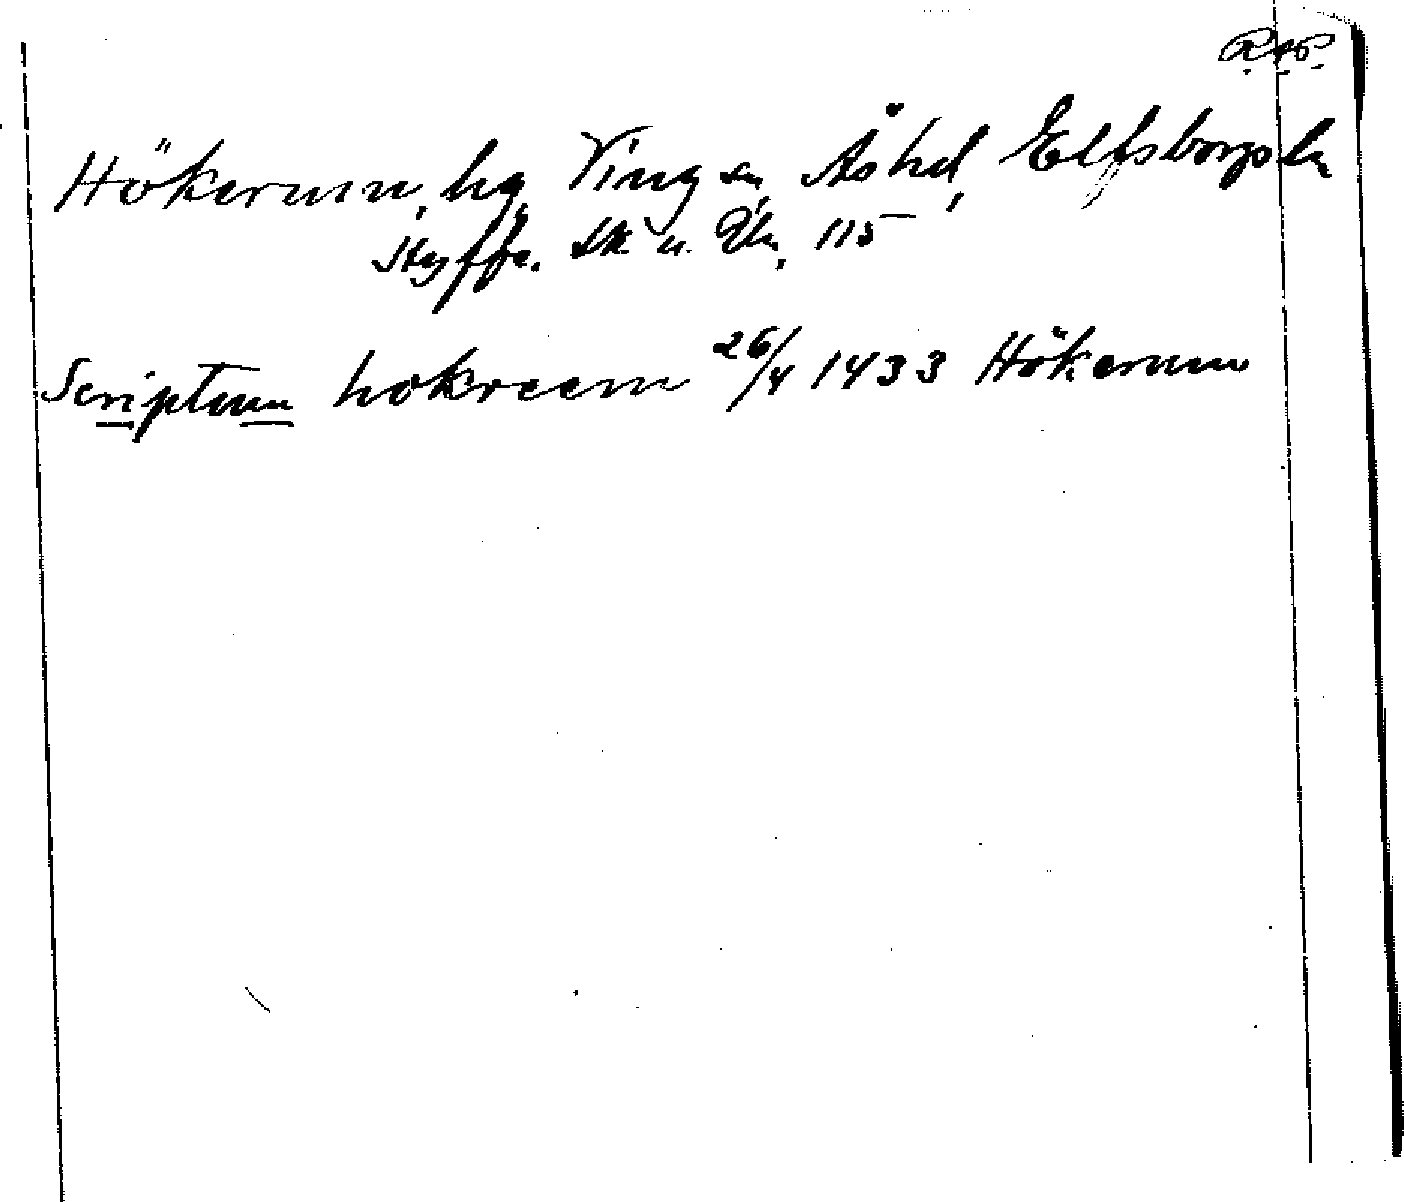 R.A.P.
Hökerum, hg, Ving sn, Ås hd, Elfsborgs ln
Styffe. Sk u. Un, 115
Scriptum hokreem 26/4 1433 Hökerum